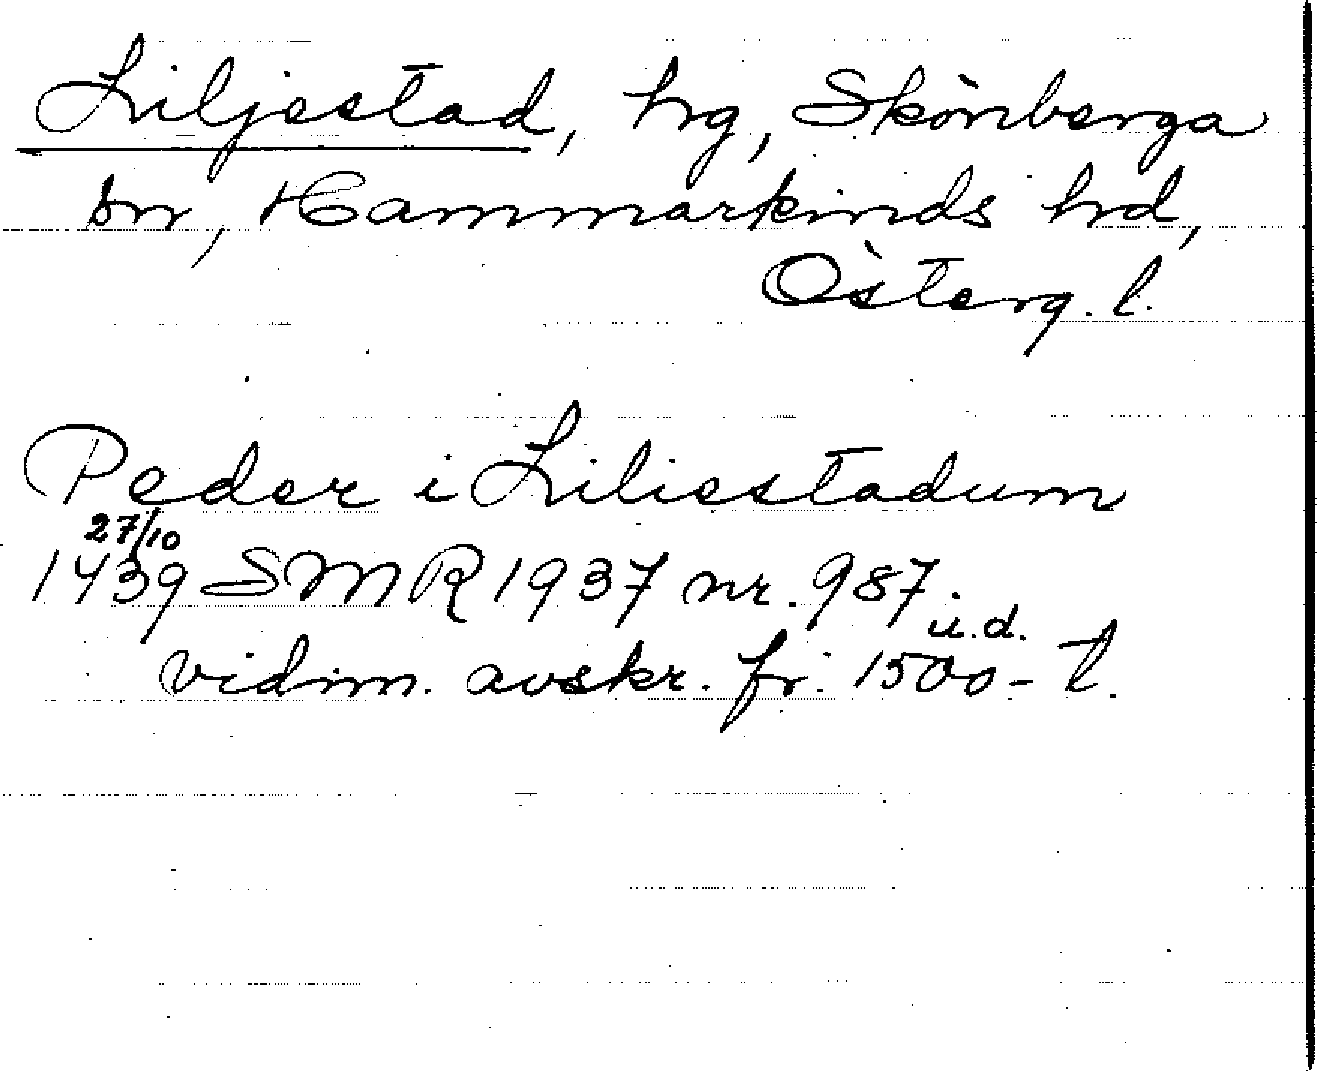 Liljestad, hg, Skönberga
sn, Hammarkinds hd,
Österg. l.
Peder i Liliestadum
27/10
1439 SMR 1937 nr. 987.
vidim. avskr. fr. 1500-t.
u.d.